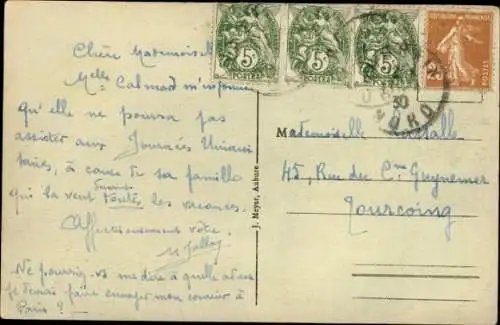 Chère Mademoiselle
Melle Calmad m'informe
qu'elle ne pourra pas
assister aux Journées Universi
taires, à cause de sa famille
qui la veut durant
toutes les vacances.
Affectueusement vôtre.
Ne pourriez-vs me dire à quelle adresse
je devrai faire envoyer mon courrier à
Paris ?
J. Meyer, Aubure
5c 5c 5c
POSTES POSTES
REPUBLIQUE FRANÇAISE
POSTES
30
NORD
M
Mademoiselle
45, Rue du Cne Guynemer
Tourcoing